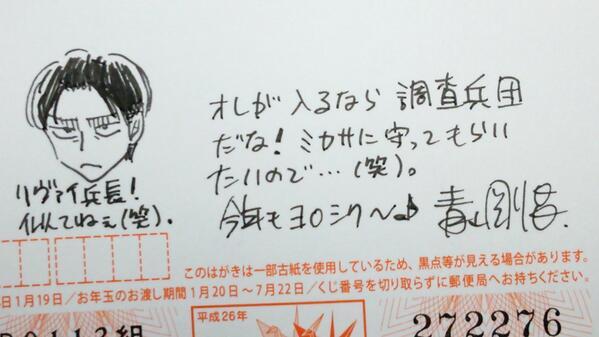 オレが入るなら調査兵団
だな！ミカサに守ってもらい
たいので…(笑)。
今年もヨロシク〜♪ 青山剛昌
リヴァイ兵長！
似てねぇ(笑)。
このはがきは一部古紙を使用しているため、黒点等が見える場合があります。
1月19日／お年玉のお渡し期間 1月20日〜7月22日／くじ番号を切り取らずに郵便局へお持ちください。
平成26年
組
272276